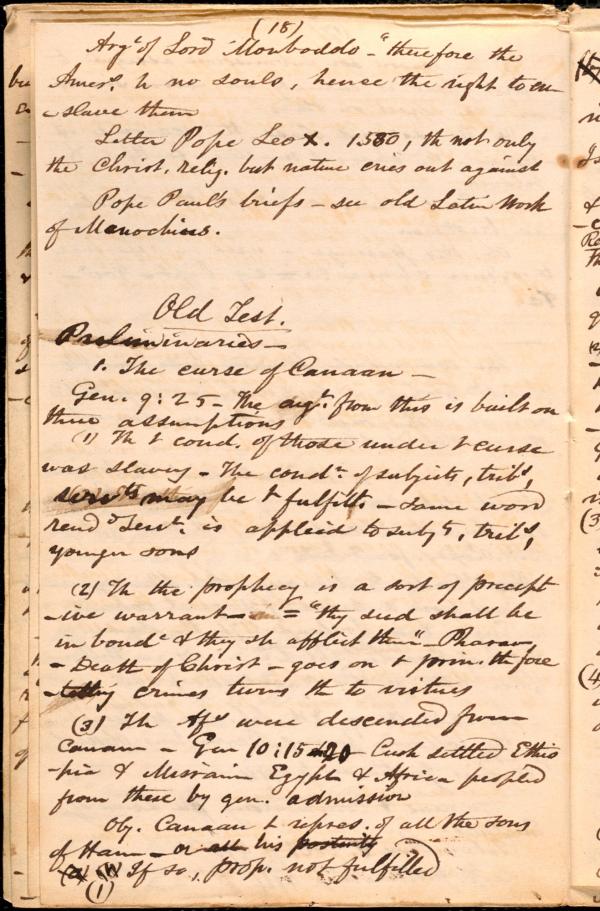 (18)
Argt of Lord Monboddo - "therefore the
Amers. h no souls, hence the right to en-
-slave them
Letter Pope Leo X. 1580, th not only
the Christ. relig. but nature cries out against
Pope Paul's briefs - see old Latin Work
of Menochius.
Old Test.
Preliminaries -
1. The curse of Canaan -
Gen. 9:25 - The argt. from this is built on
three assumptions
(1) Th t cond. of those under t curse
was slavery - The condn of subjects, tribs,
servts may be t fulfillt - same word
rendd Servt. is applied to subjts, tribs,
younger sons
(2) Th the prophecy is a sort of precept
-ive warrant - = "thy seed shall be
in bondg & they sh afflict them" - Pharao
- Death of Christ - goes on t prin. th fore
-telling crimes turns th to virtues
(3) Th Afs were descended from
Canaan - Gen 10:15-20 - Cush settled Ethio
-pia & Misraim Egypt & Africa peopled
from these by gen. admission
Obj. Canaan t repres. of all the sons
of Ham - or all his posterity
(1) If so, prop. not fulfilled